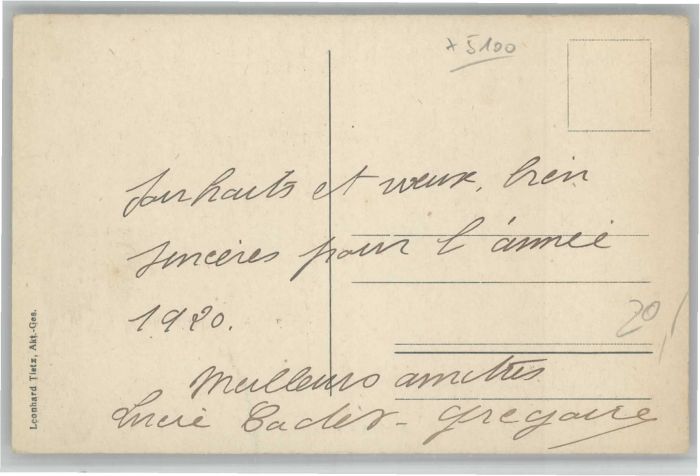 x 5100
souhaits et vœux, bien
sincères pour l'année
1920.
20
Meilleurs amitiés
Lucie Cadet - Grégoire
Leonhard Tietz, Akt.-Ges.